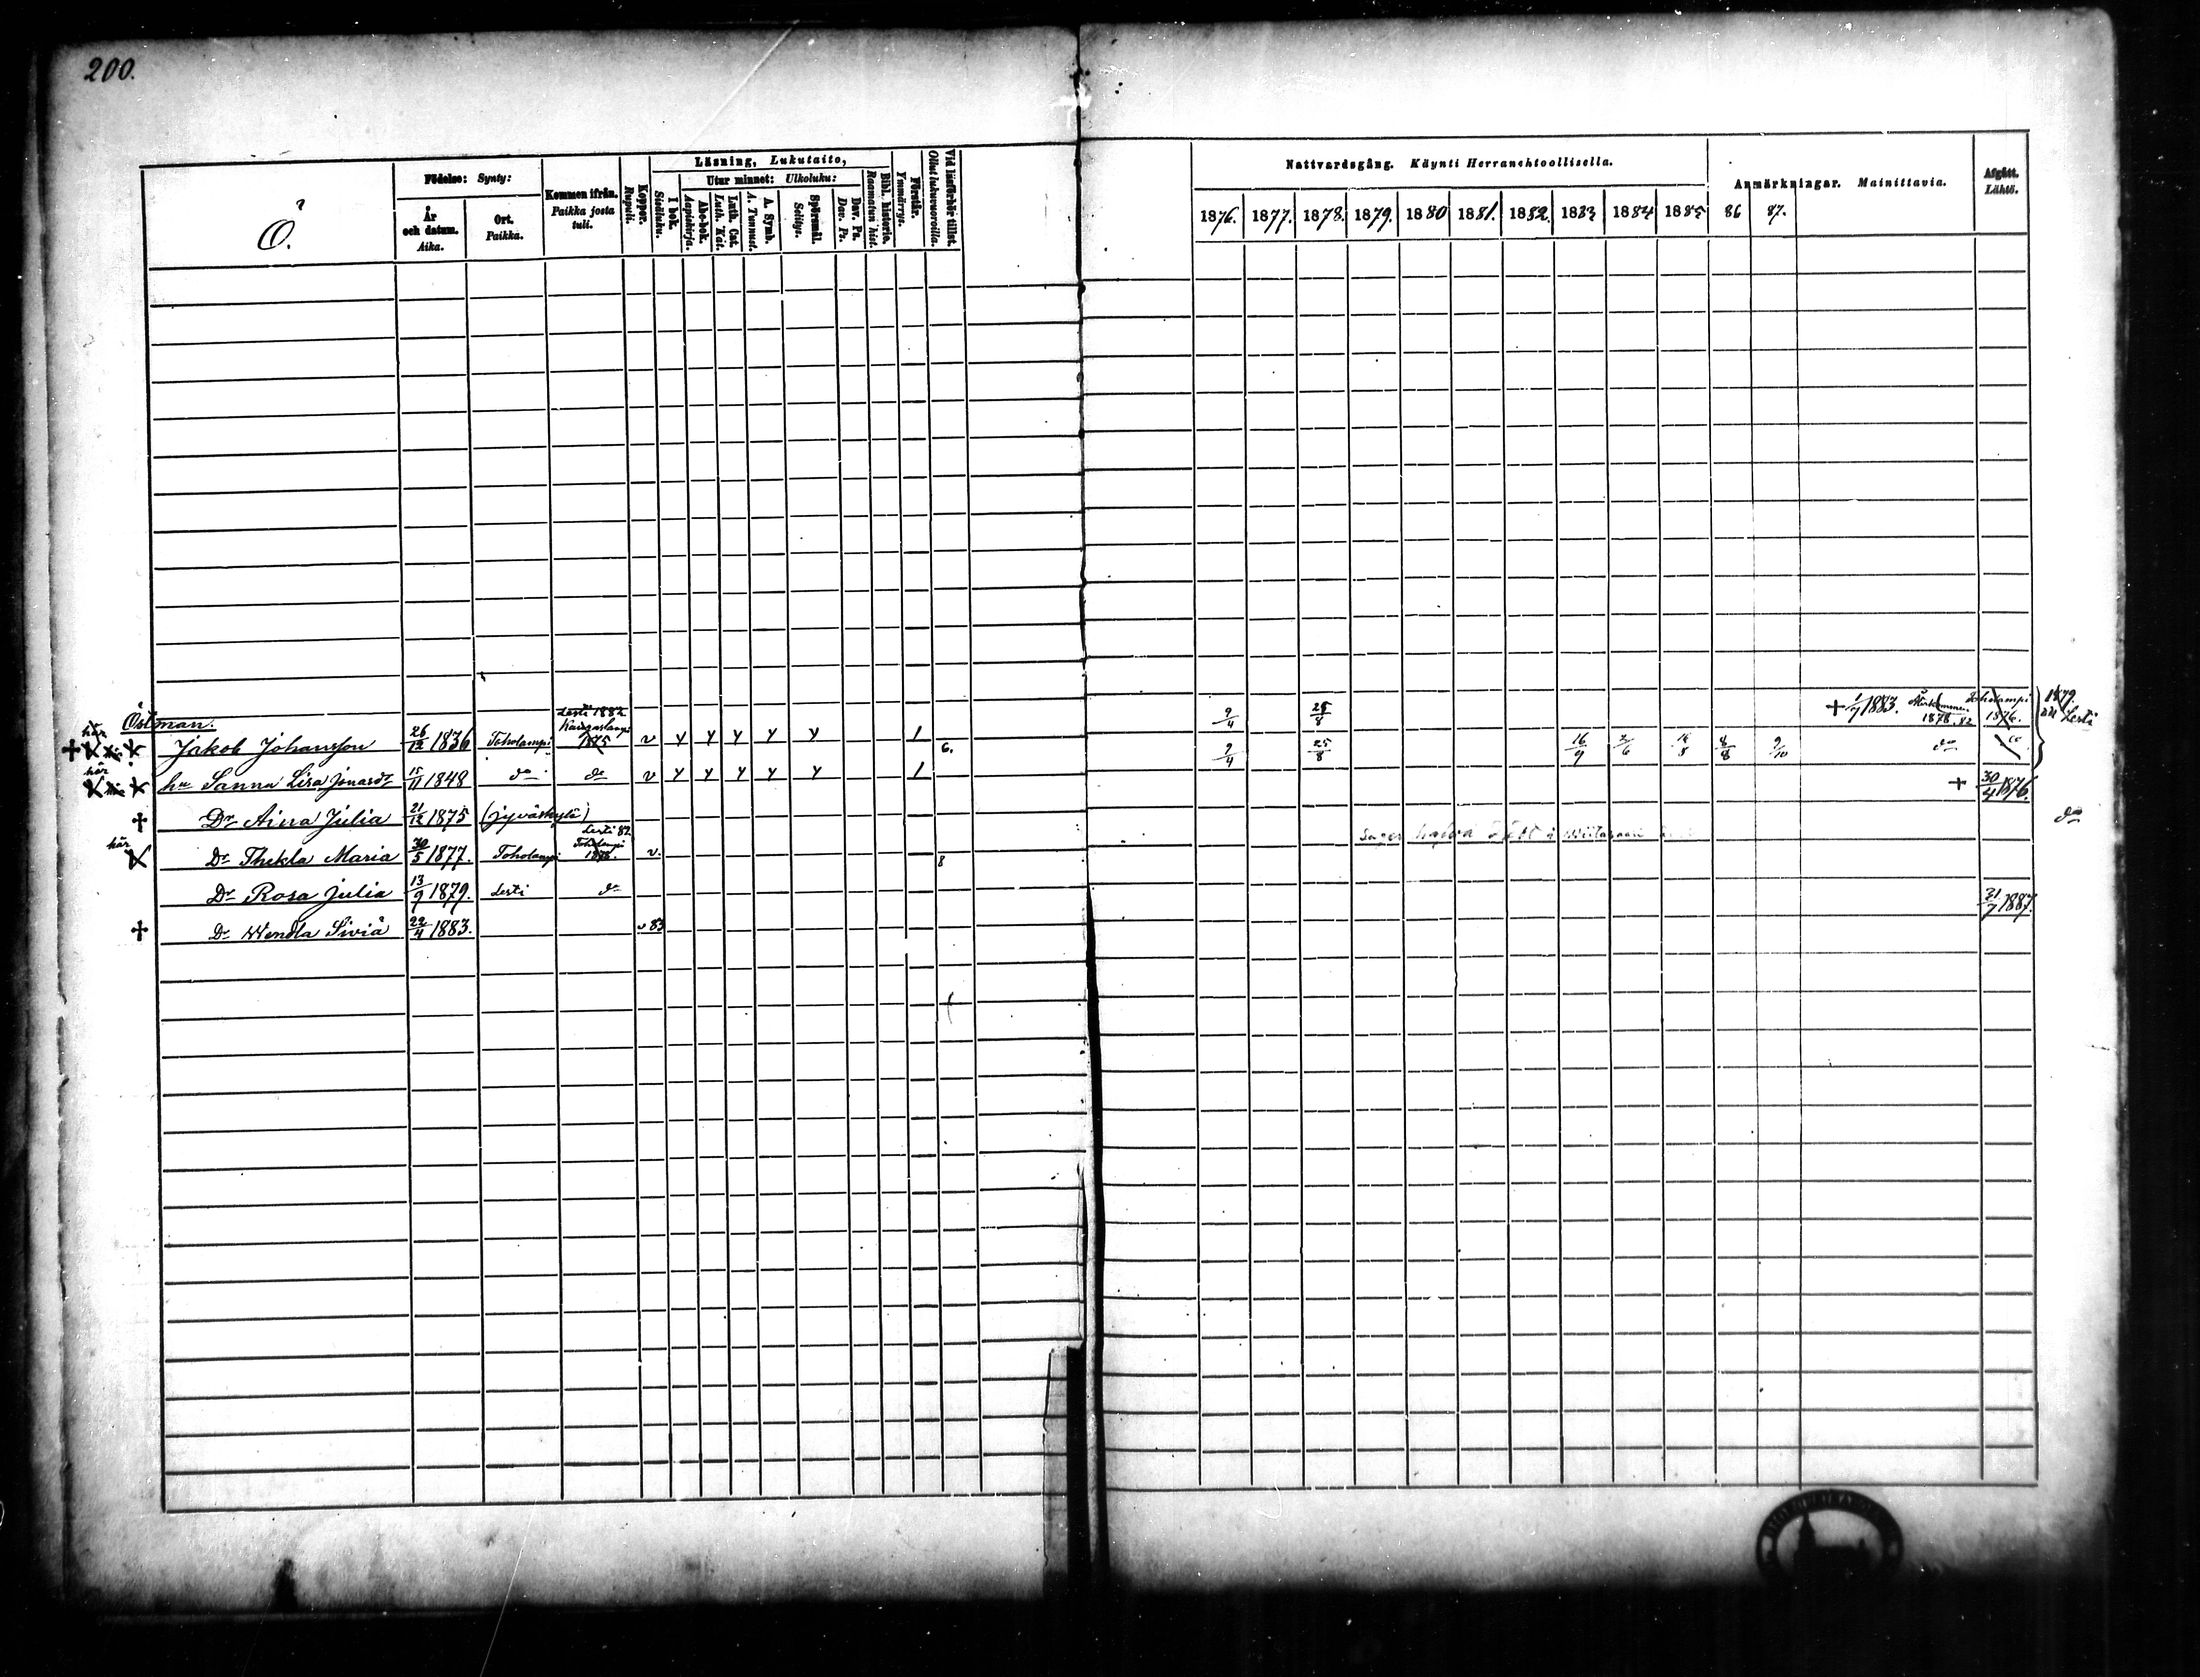 200.
Ö.
Födelse: Synty:
År och datum. Aika.
Ort. Paikka.
Kommen ifrån. Paikka josta tuli.
Koppor. Rupuli.
Läsning, Lukutaito,
I bok. Sisäluku.
Utur minnet: Ulkoluku:
Abc-bok. Aapiskirja.
Luth. Cat. Luth. Kat.
A. Symb. A. Tunnust.
Spörsmål. Selitys.
Dav. Ps. Dav. Ps.
Bibl. historie. Raamatun hist.
Förstår. Ymmärrys.
Vid läsförhör tillst. Ollut lukuvuoroilla.
Nattvardsgång. Käynti Herranehtoollisella.
1876. 1877. 1878. 1879. 1880 1881. 1882. 1883 1884 1885 86 87.
Anmärkningar. Mainittavia.
Afgått. Lähtö.
Östman. Lesti 1882 9/4 25/8 + 1/7 1883. 1878. 82 Toholampi 1876. 1879
här Jakob Johansson 26/12 1836 Toholampi Kangaslampi 1875 v y y y y y 1 6. Lesti
9/4 25/8 16/9 8/8 9/10 do
här Sanna Lisa 15/11 1848 do do v y y y y y 1
+ Dr Aina Julia 21/12 1875 (jyväskylä) + 30/4 1876.
här Dr Thekla Maria 30/5 1877. Toholampi Lesti 82 Toholampi 1878. v. 8 do
Dr Rosa Julia 13/9 1879. Lesti do
+ Dr Wendla Siviä 22/4 1883. v 83 31/7 1887.